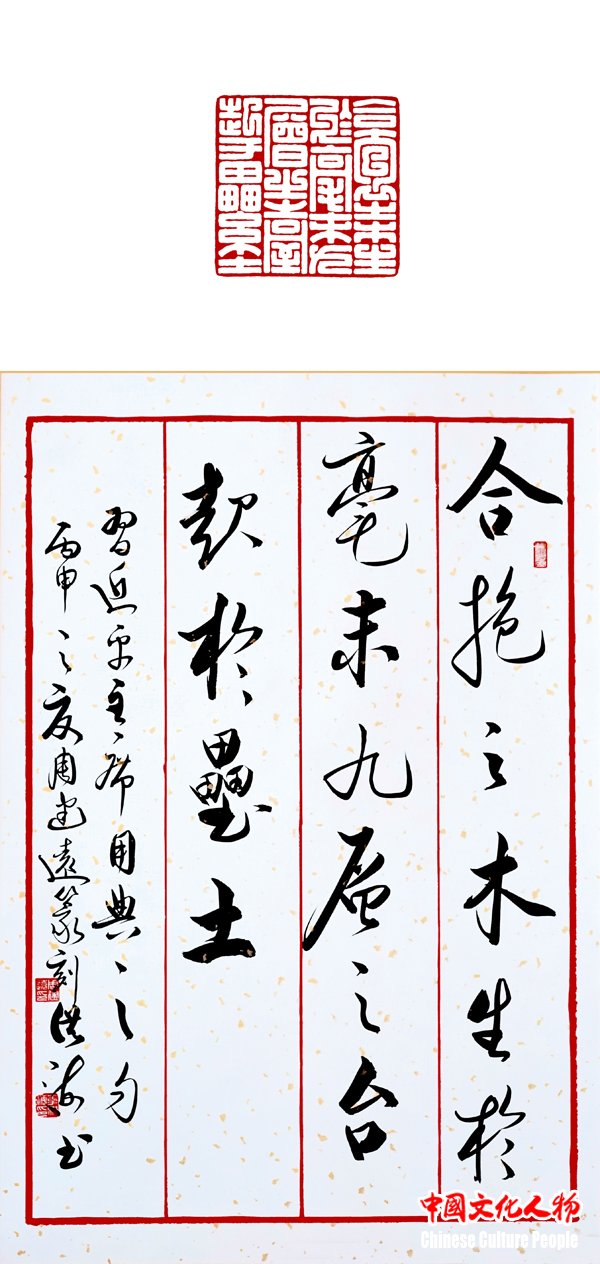 合抱之木生
於毫末九
層之臺
合抱之木生於
毫末九层之台
起於壘土
習近平主席用典之句
丙申之夏周建遠篆刻洪海书
中國文化人物
Chinese Culture People